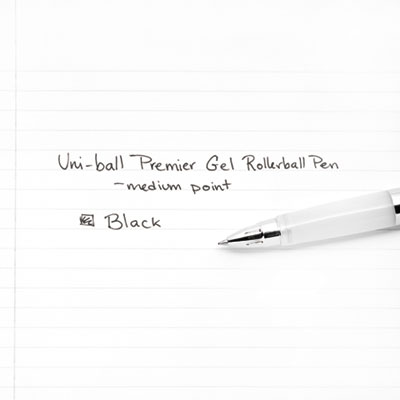 Uni-ball Premier Gel Rollerball Pen
-medium point
Black